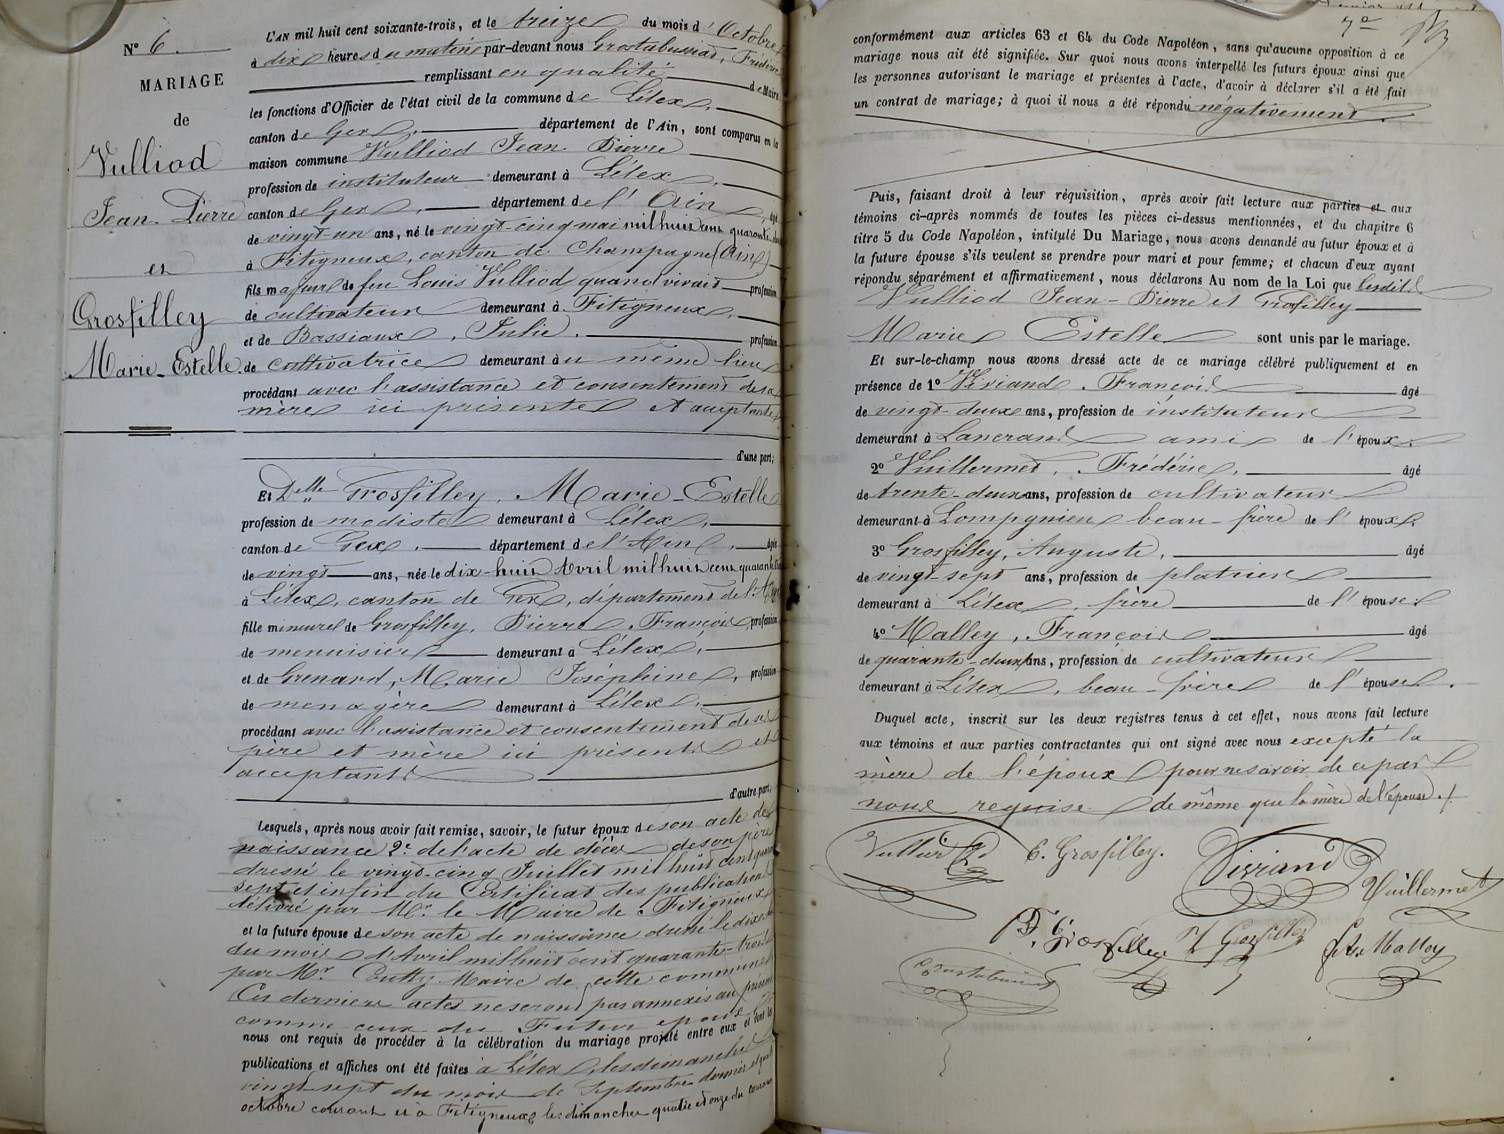 N° 6.
MARIAGE
de
Vulliod
Jean-Pierre
et
Grosfilley
Marie-Estelle.
L'AN mil huit cent soixante-trois, et le treize du mois d'Octobre
à dix heures du matin par-devant nous Grostabussiat, Frédéric
remplissant en qualité de Maire
les fonctions d'Officier de l'état civil de la commune de Lélex,
canton de Gex, département de l'Ain, sont comparus en la
maison commune Vulliod Jean-Pierre
profession de instituteur demeurant à Lélex,
canton de Gex, département de l'Ain, âgé
de vingt-un ans, né le vingt-cinq mai mil huit cent quarante-deux
à Fitigneux, canton de Champagne (Ain)
fils majeur de feu Louis Vulliod quand vivait profession
de cultivateur demeurant à Fitigneux,
et de Bassiaux, Julie, profession
de cultivatrice demeurant au même lieu
procédant avec l'assistance et consentement de sa
mère ici présente et acceptante
d'une part;
Et Delle Grosfilley, Marie-Estelle
profession de modiste demeurant à Lélex,
canton de Gex, département de l'Ain, âgée
de vingt ans, née le dix-huit Avril mil huit cent quarante-trois
à Lélex, canton de Gex, département de l'Ain
fille mineure de Grosfilley, Pierre François, profession
de menuisier demeurant à Lélex,
et de Grenard, Marie Joséphine, profession
de ménagère demeurant à Lélex,
procédant avec l'assistance et consentement de ses
père et mère ici présents et
acceptants
d'autre part;
Lesquels, après nous avoir fait remise, savoir, le futur époux de son acte de
naissance 2° de l'acte de décès de son père
dressé le vingt-cinq Juillet mil huit cent quarante
sept et enfin du Certificat des publications
délivré par Mr. le Maire de Fitigneux
et la future épouse de son acte de naissance dressé le dix-huit
du mois d'Avril mil huit cent quarante-trois
par Mr Maire de cette commune
Ces derniers actes ne seront pas annexés au présent
comme ceux du Futur époux
nous ont requis de procéder à la célébration du mariage projeté entre eux et dont les
publications et affiches ont été faites à Lélex, les dimanches
vingt-sept du mois de Septembre dernier et quatre
octobre courant et à Fitigneux les dimanches quatre et onze du courant
7e
conformément aux articles 63 et 64 du Code Napoléon, sans qu'aucune opposition à ce
mariage nous ait été signifiée. Sur quoi nous avons interpellé les futurs époux ainsi que
les personnes autorisant le mariage et présentes à l'acte, d'avoir à déclarer s'il a été fait
un contrat de mariage; à quoi il nous a été répondu négativement.
Puis, faisant droit à leur réquisition, après avoir fait lecture aux parties et aux
témoins ci-après nommés de toutes les pièces ci-dessus mentionnées, et du chapitre 6
titre 5 du Code Napoléon, intitulé Du Mariage, nous avons demandé au futur époux et à
la future épouse s'ils veulent se prendre pour mari et pour femme; et chacun d'eux ayant
répondu séparément et affirmativement, nous déclarons Au nom de la Loi que lesdits
Vulliod Jean-Pierre et Grosfilley
Marie Estelle sont unis par le mariage.
Et sur-le-champ nous avons dressé acte de ce mariage célébré publiquement et en
présence de 1° Viviand, François âgé
de vingt-deux ans, profession de instituteur
demeurant à Lancrans ami de l'époux.
2° Vuillermet, Frédéric, âgé
de trente-deux ans, profession de cultivateur
demeurant à Lompgnieu beau-frère de l'époux.
3° Grosfilley, Auguste, âgé
de vingt-sept ans, profession de platrier
demeurant à Lélex, frère de l'épouse.
4° Malley, François âgé
de quarante-deux ans, profession de cultivateur
demeurant à Lélex, beau-frère de l'épouse.
Duquel acte, inscrit sur les deux registres tenus à cet effet, nous avons fait lecture
aux témoins et aux parties contractantes qui ont signé avec nous excepté la
mère de l'époux pour ne savoir de ce par
nous requise de même que la mère de l'épouse./.
E. Grosfilley.
Viviand
Vuillermet
P. F. Grosfilley
Grosfilley
Malley